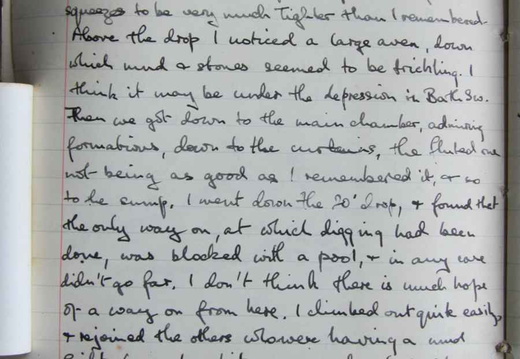 squeezes to be very much tighter than I remembered.
Above the drop I noticed a large aven, down
which mud & stones seemed to be trickling. I
think it may be under the depression in Bath Sw.
Then we got down to the main chamber, admiring
formations, down to the curtains, the fluted one
not being as good as I remembered it, & so
to the sump. I went down the 20' drop, & found that
the only way on, at which digging had been
done, was blocked with a pool, & in any case
didn't go far. I don't think there is much hope
of a way on from here. I climbed out quite easily
& rejoined the others who were having a mud